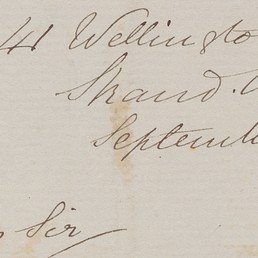 41 Wellingto
Strand.
Septemb
Sir